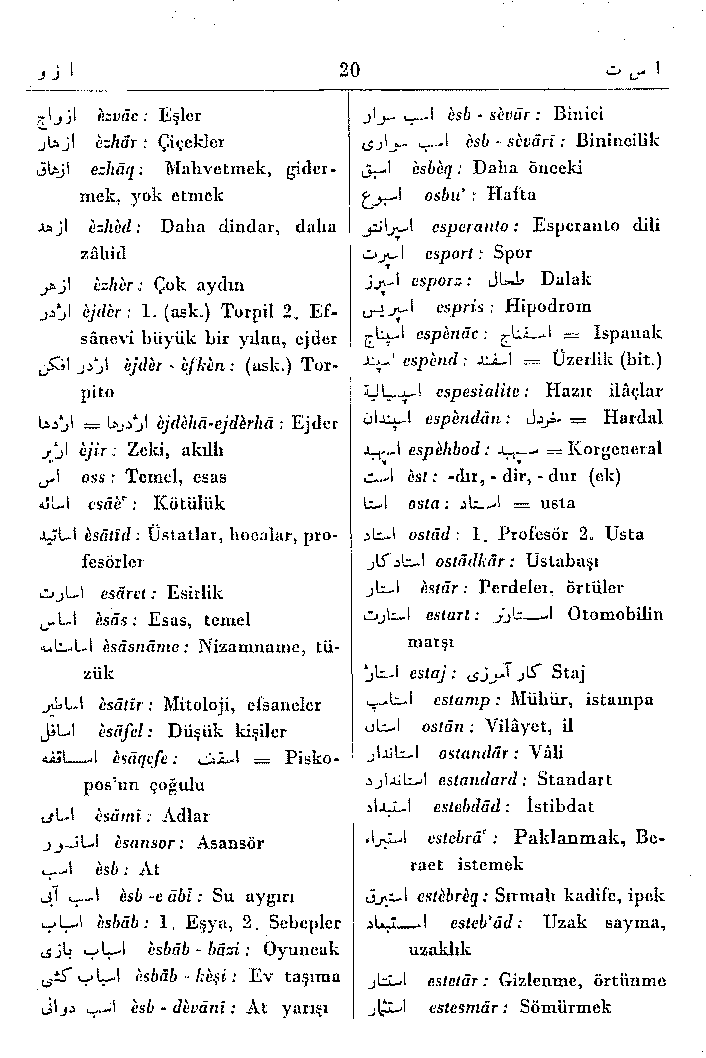 ا ز و 20 ا س ت
ازواج èzvâc : Eşler
ازهار èzhâr : Çiçekler
ازهاق ezhâq : Mahvetmek, gider-
mek, yok etmek
ازهد èzhèd : Daha dindar, daha
zâhid
ازهر èzhèr : Çok aydın
اژدر èjdèr : 1. (ask.) Torpil 2. Ef-
sânevi büyük bir yılan, ejder
اژدر افکن èjdèr - èfkèn : (ask.) Tor-
pito
اژدها = اژدرها èjdèhâ-ejdèrhâ : Ejder
اژیر èjir : Zeki, akıllı
اس oss : Temel, esas
اسائه esâèʿ : Kötülük
اساتید èsâtîd : Üstatlar, hocalar, pro-
fesörler
اسارت esâret : Esirlik
اساس èsâs : Esas, temel
اساسنامه èsâsnâme : Nizamname, tü-
zük
اساطیر èsâtîr : Mitoloji, efsaneler
اسافل èsâfel : Düşük kişiler
اساقفه èsâqefe : اسقف = Pisko-
pos'un çoğulu
اسامی èsâmi : Adlar
اسانسور èsansor : Asansör
اسب èsb : At
اسب آبی èsb -e âbî : Su aygırı
اسباب èsbâb : 1. Eşya, 2. Sebepler
اسباب بازی èsbâb - bâzi : Oyuncak
اسباب کشی èsbâb - keşi : Ev taşıma
اسب دوانی èsb - dèvânî : At yarışı
اسب سوار èsb - sèvâr : Binici
اسب سواری èsb - sèvârî : Binincilik
اسبق èsbèq : Daha önceki
اسبوع osbu' : Hafta
اسپرانتو esperanto : Esperanto dili
اسپرت esport : Spor
اسپرز esporz : طحال Dalak
اسپریس espris : Hipodrom
اسپناج espènâc : اسفناج = Ispanak
اسپند espènd : اسفند = Üzerlik (bit.)
اسپسیالیته espesialite : Hazır ilâçlar
اسپندان espèndân : خردل = Hardal
اسپهبد espèhbod : سپهبد = Korgeneral
است èst : -dır, - dir, - dur (ek)
استا osta : استاد = usta
استاد ostâd : 1. Profesör 2. Usta
استاد کار ostâdkâr : Ustabaşı
استار èstâr : Perdeler, örtüler
استارت estart : استارتر Otomobilin
marşı
استاژ estaj : کار آموزی Staj
استامپ estamp : Mühür, istampa
استان ostân : Vilâyet, il
استاندار ostandâr : Vâli
استاندارد estandard : Standart
استبداد estebdâd : İstibdat
استبراء estebrâʿ : Paklanmak, Be-
raet istemek
استبرق estèbrèq : Sırmalı kadife, ipek
استبعاد esteb'âd : Uzak sayma,
uzaklık
استتار estetâr : Gizlenme, örtünme
استثمار estesmâr : Sömürmek